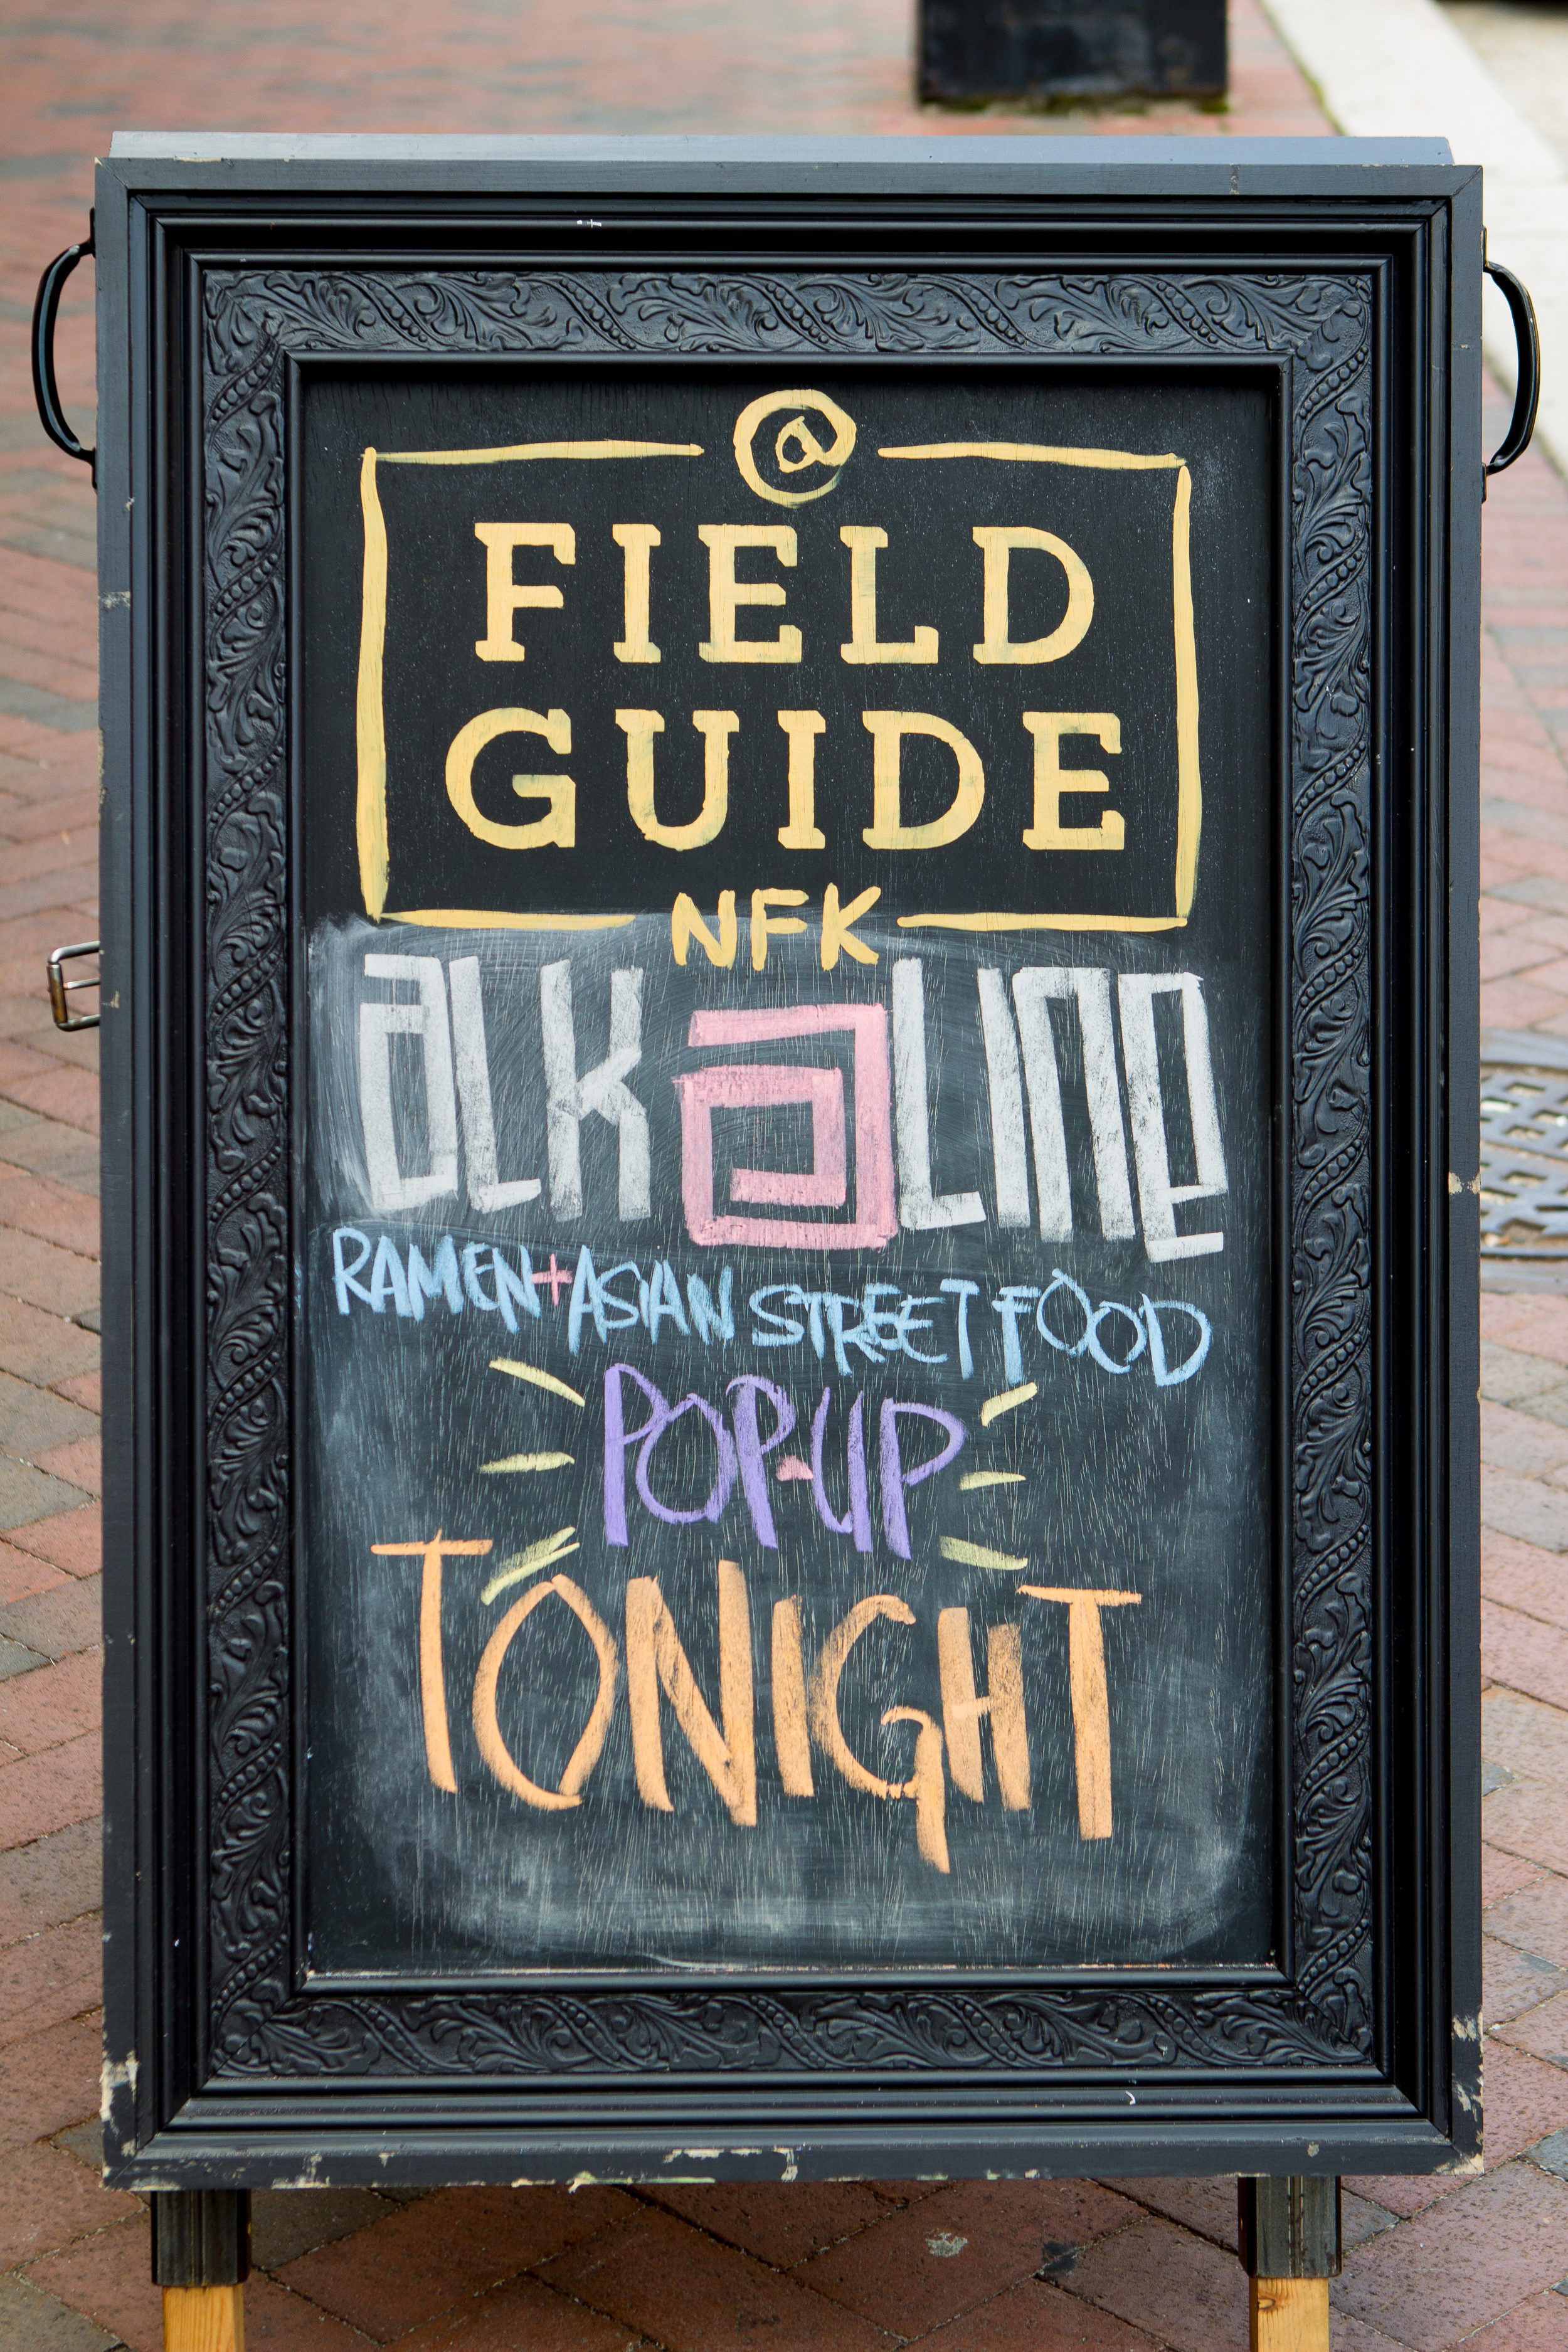 @
FIELD
GUIDE
NFK
aLKaLINe
RAMEN+ASIAN STREET FOOD
POP-UP
TONIGHT